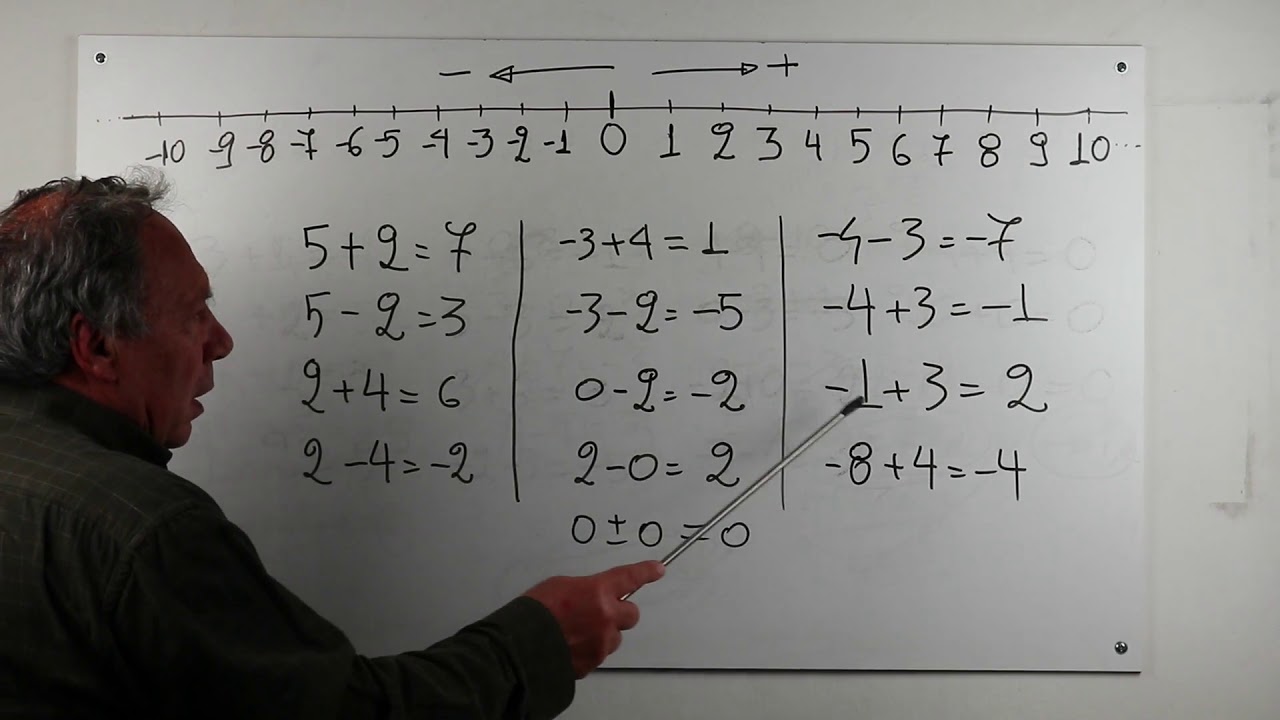 - +
-10 -9 -8 -7 -6 -5 -4 -3 -2 -1 0 1 2 3 4 5 6 7 8 9 10 ...
5+2=7
5-2=3
2+4=6
2-4=-2
-3+4=1
-3-2=-5
0-2=-2
2-0=2
0±0=0
-4-3=-7
-4+3=-1
-1+3=2
-8+4=-4